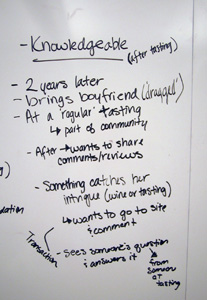 - Knowledgeable
(after tasting)
- 2 years later
- brings boyfriend ("dragged")
- At a "regular" tasting
↳ part of community
- After → wants to share
comments/reviews
- Something catches her
intrigue (wine or tasting)
↳ wants to go to site
& comment
Transaction
- Sees someone's question
& answers it
↳ from someone
at
tasting